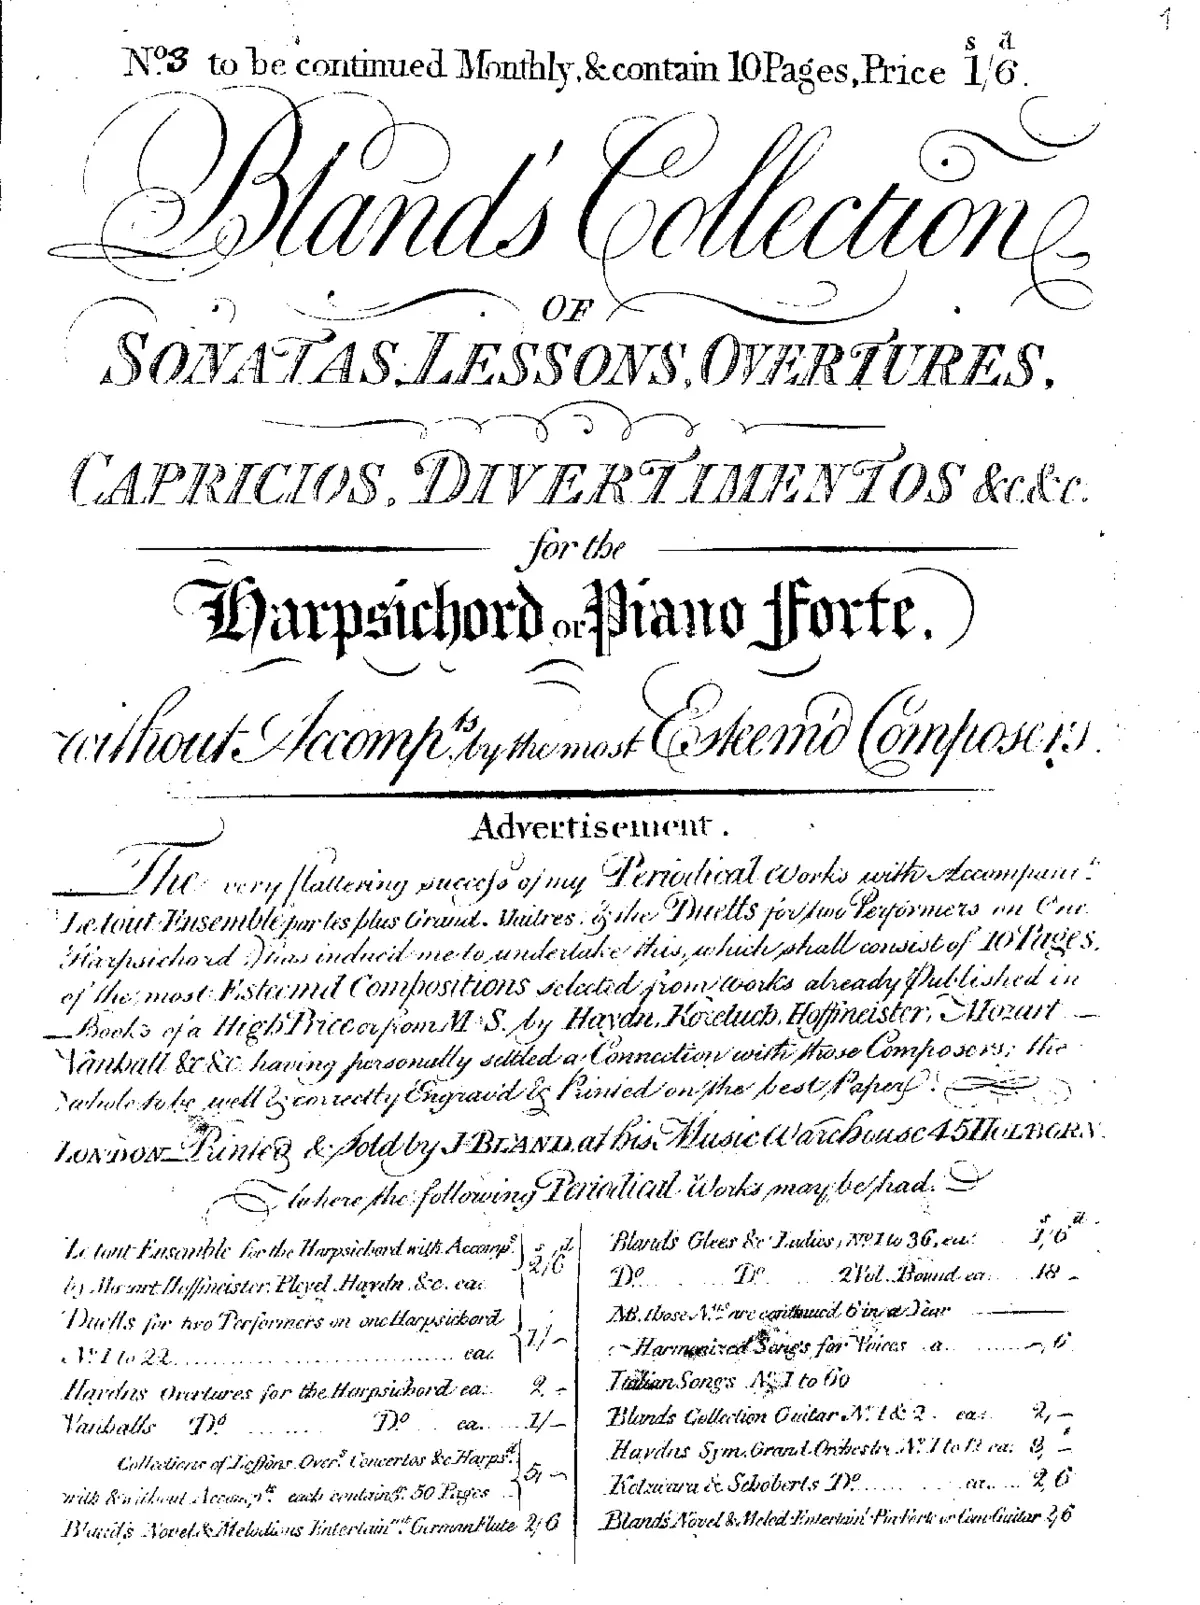 1
No. 3 to be continued Monthly, & contain 10 Pages, Price 1/6.
s d
Bland's Collection
OF
SONATAS, LESSONS, OVERTURES,
CAPRICIOS, DIVERTIMENTOS &c &c.
for the
Harpsichord or Piano Forte.
without Accompts. by the most Esteem'd Composers.
Advertisement.
The very flattering success of my Periodical Works with Accompant.
Le tout Ensemble par les plus Grand. Maitres, & the Duetts for two Performers on One
Harpsichord) has induced me to undertake this, which shall consist of 10 Pages,
of the most Esteemd Compositions selected from Works already Published in
Books of a High Price or from M.S. by Haydn, Kozeluch, Hoffmeister, Mozart
Vanhall &c &c. having personally settled a Connection with those Composers; the
whole to be well & correctly Engrav'd & Printed on the best Paper.
LONDON Printed & Sold by J. BLAND at his Music Warehouse 45 HOLBORN.
where the following Periodical Works may be had.
Le tout Ensemble for the Harpsichord with Accomps. s d
by Mozart Hoffmeister, Pleyel, Haydn, &c. ea: 2/6
Duetts for two Performers on one Harpsichord
No. 1 to 22 ea: 1/-
Haydns Overtures for the Harpsichord ea: 2 -
Vanhalls Do. Do. ea. 1/-
Collections of Lessons, Overs. Concertos &c Harpsd.
with & without Accompts. each containg. 50 Pages 5, -
Bland's Novel & Melodious Entertainmt. German Flute 2/6
s d
Blands Glees &c Ladies, No. 1 to 36, ea: 1/6
Do. Do. 2 Vol. Bound ea. 18 -
NB. those Nos. are continued 6 in a Year
Harmonized Songs for Voices a -, 6
Italian Songs No. 1 to 60
Blands Collection Guitar No. 1 & 2. ea: 2, -
Haydns Sym. Grand Orchestre No. 1 to 12 ea: 3, -
Kotzwara & Schoberts Do. ea. 2, 6
Bland's Novel & Melod. Entertain. Pia Forte or Com Guitar 2/6